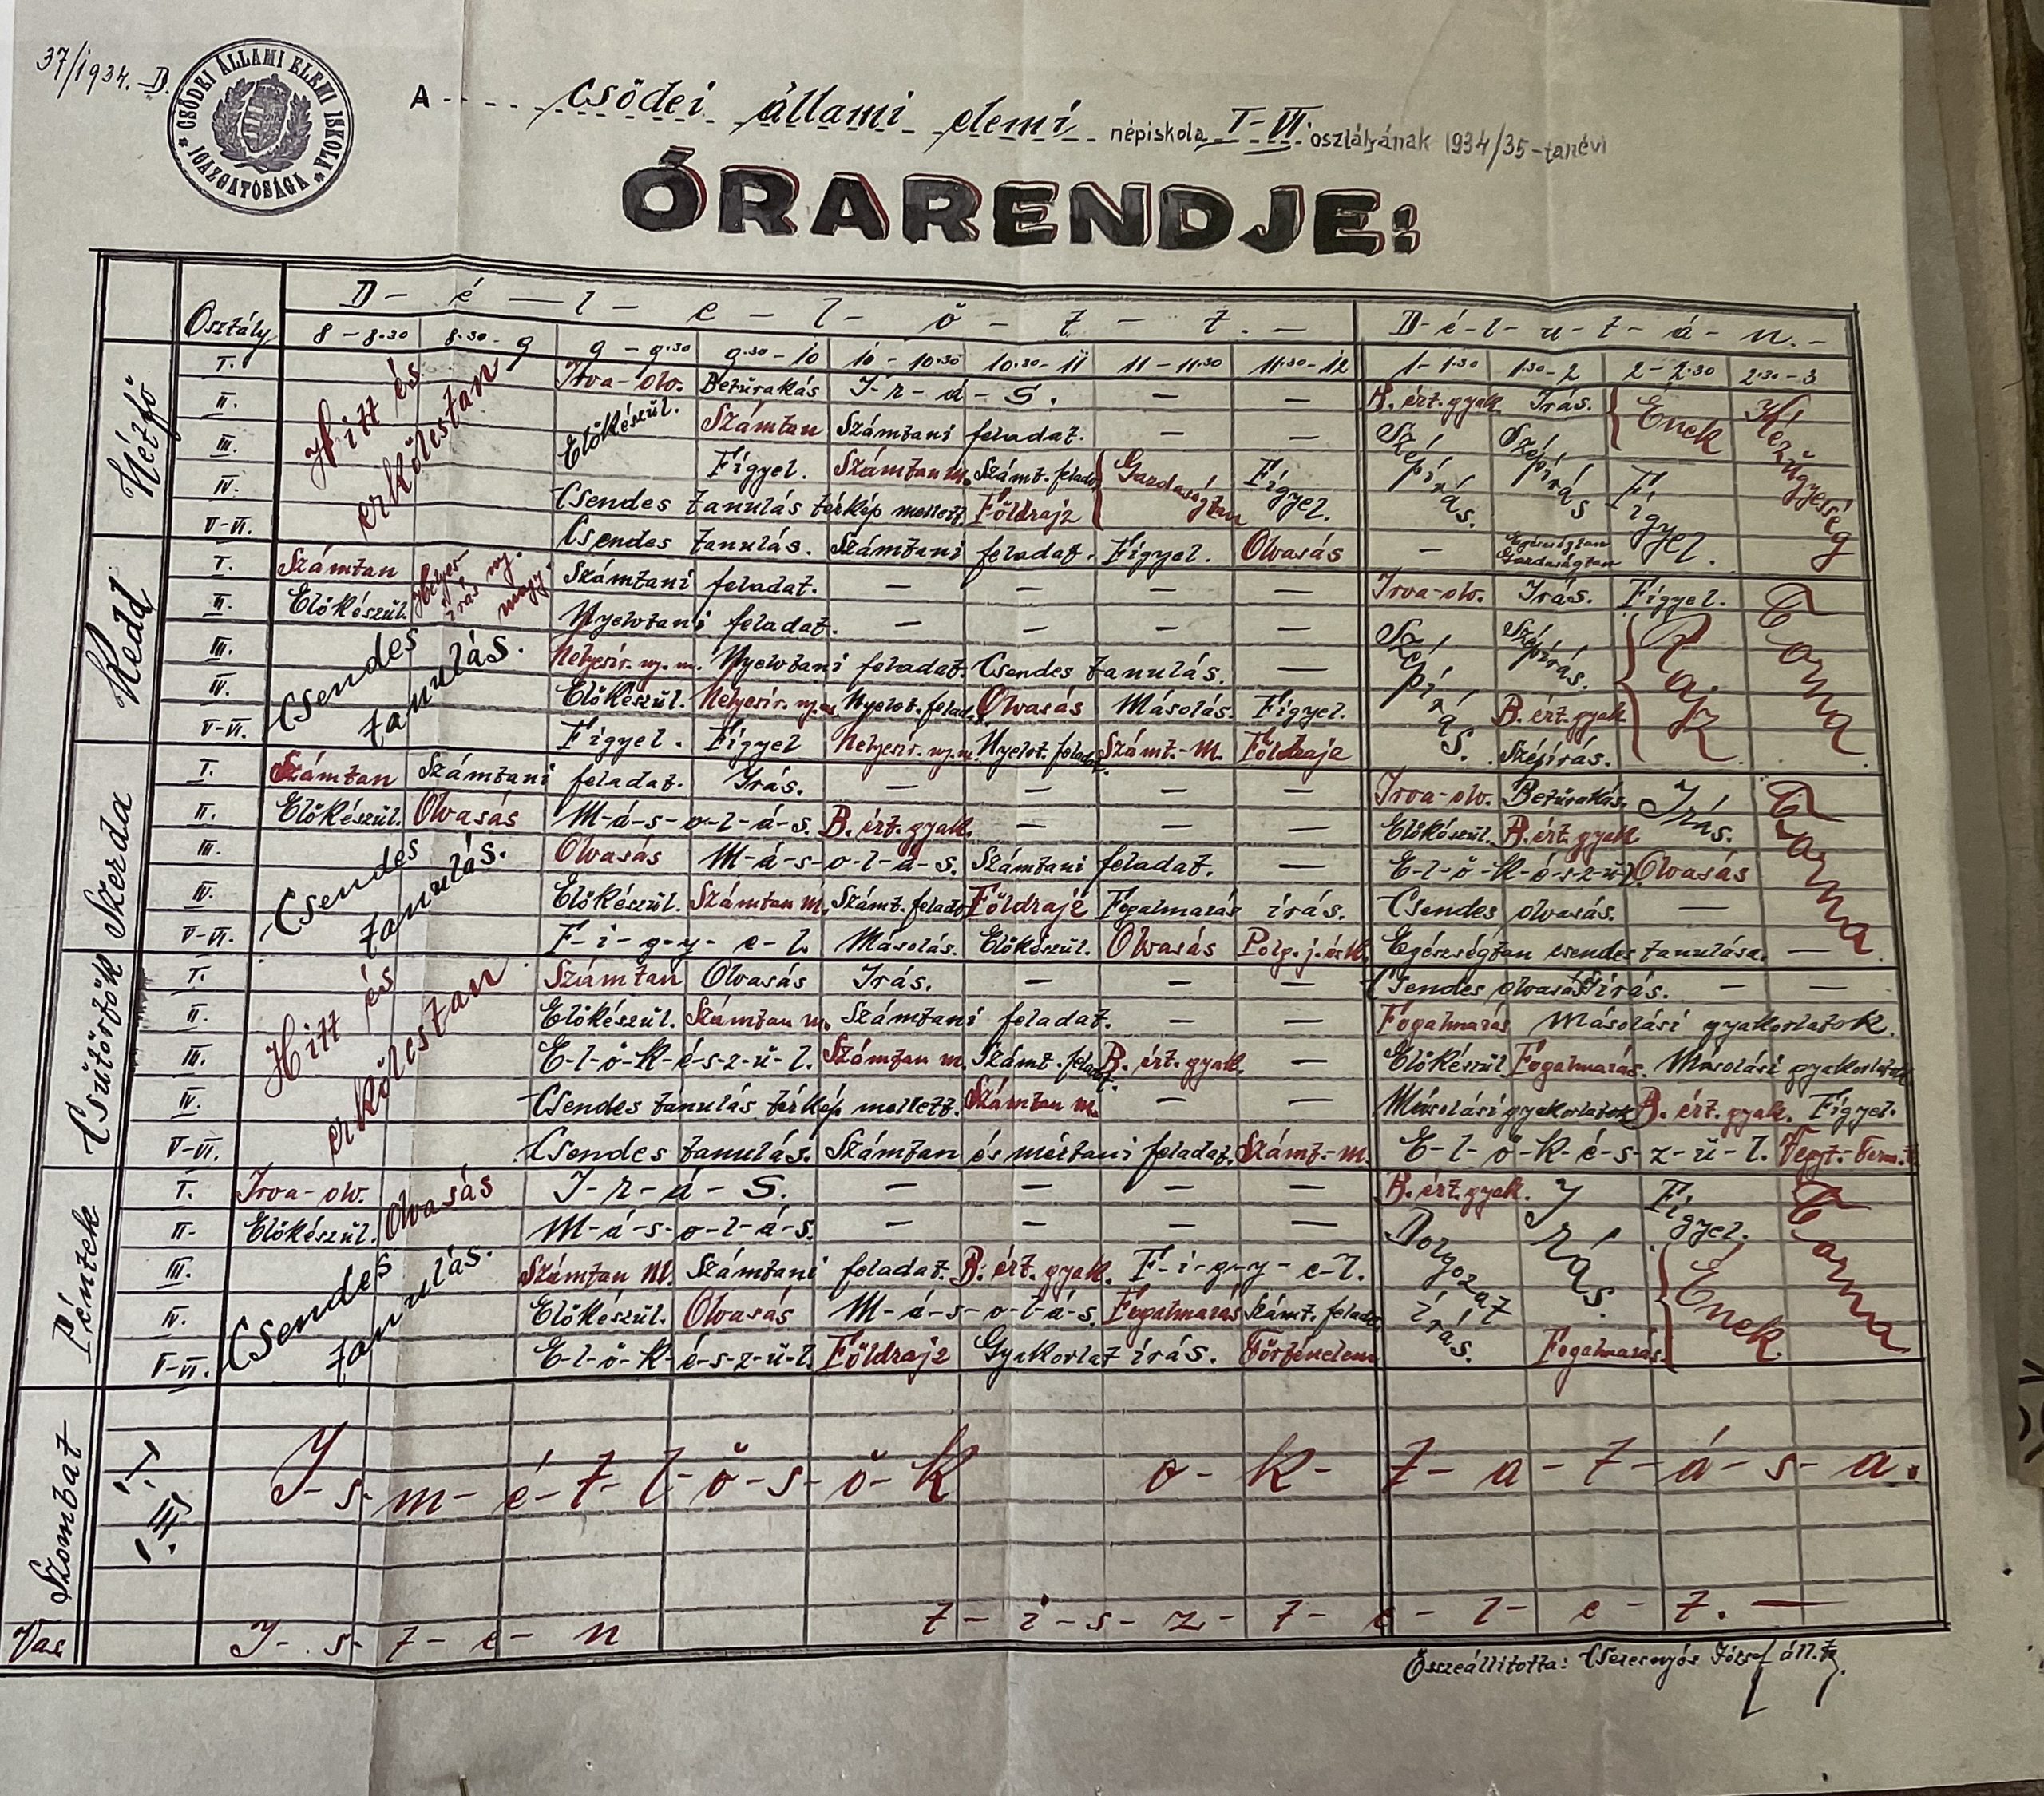 37/1934.-D.
CSŐDEI ÁLLAMI ELEMI ISKOLA
* IGAZGATÓSÁGA *
A - - - - - Csődei állami elemi népiskola I-VI. osztályának 1934/35-tanévi
ÓRARENDJE:
Osztály D-é-l-e-l-ő-t-t.- D-é-l-u-t-á-n.-
8-8.30 8.30-9 9-9.30 9.30-10 10-10.30 10.30-11 11-11.30 11.30-12 1-1.30 1.30-2 2-2.30 2.30-3
Hétfő
Hitt és erkölcstan
I. Irva-olv. Betűrakás I-r-á-s. - - B. ért. gyak. Irás. Ének Kézügyesség
II. Előkészül. Számtan Számtani feladat. - - Szépírás. Szépírás
III. Figyel. Számtan m. Számt. felad. Gazdaságtan Figyel. Figyel.
IV. Csendes tanulás térkép mellett. Földrajz
V-VI. Csendes tanulás. Számtani feladat. Figyel. Olvasás - Egészségtan Gazdaságtan
Kedd
I. Számtan Helyes írás ny. magy. Számtani feladat. - - - - Irva-olv. Irás. Figyel. Torna
II. Előkészül. Nyelvtani feladat. - - - - Szépírás. Szépírás. Rajz
III. Csendes tanulás. Helyesir. ny. m. Nyelvtani feladat. Csendes tanulás. -
IV. Előkészül. Helyesir. ny. m. Nyelvt. felad. Olvasás Másolás. Figyel. B. ért. gyak.
V-VI. Figyel. Figyel Helyesir. ny. m. Nyelvt. felad. Számt.-M. Földrajz Szépírás.
Szerda
I. Számtan Számtani feladat. Irás. - - - - Irva-olv. Betűrakás. Irás. Torna
II. Előkészül. Olvasás M-á-s-o-l-á-s. B. ért. gyak. - - - Előkészül. B. ért. gyak.
III. Csendes tanulás. Olvasás M-á-s-o-l-á-s. Számtani feladat. - E-l-ő-k-é-s-z-ü-l. Olvasás
IV. Előkészül. Számtan m. Számt. felad. Földrajz Fogalmazás írás. Csendes olvasás. -
V-VI. F-i-g-y-e-l. Másolás. Előkészül. Olvasás Polg. j. és k. Egészségtan csendes tanulása. -
Csütörtök
Hitt és erkölcstan
I. Számtan Olvasás Irás. - - - Csendes olvasás és írás. - -
II. Előkészül. Számtan m. Számtani feladat. - - Fogalmazás Másolási gyakorlatok.
III. E-l-ő-k-é-s-z-ü-l. Számtan m. Számt. felad. B. ért. gyak. - Előkészül Fogalmazás. Másolási gyakorlatok
IV. Csendes tanulás térkép mellett. Számtan m. - - Másolási gyakorlatok B. ért. gyak. Figyel.
V-VI. Csendes tanulás. Számtan és mértani feladat. Számt.-m. E-l-ő-k-é-s-z-ü-l. Vegyt.-Term.t.
Péntek
I. Irva-olv. Olvasás I-r-á-s. - - - - B. ért. gyak. Irás. Figyel. Torna
II- Előkészül. M-á-s-o-l-á-s. - - - - Dolgozat írás.
III. Csendes tanulás. Számtan M. Számtani feladat. B. ért. gyak. F-i-g-y-e-l. Ének
IV. Előkészül. Olvasás M-á-s-o-l-á-s. Fogalmazás Számt. felad.
V-VI. E-l-ő-k-é-s-z-ü-l. Földrajz Gyakorlat írás. Történelem Fogalmazás.
Szombat
I.-III. I-s-m-é-t-l-ő-s-ö-k o-k-t-a-t-á-s-a.
Vas I-s-t-e-n t-i-s-z-t-e-l-e-t.-
Összeállította: Cseresnyés József áll. t.